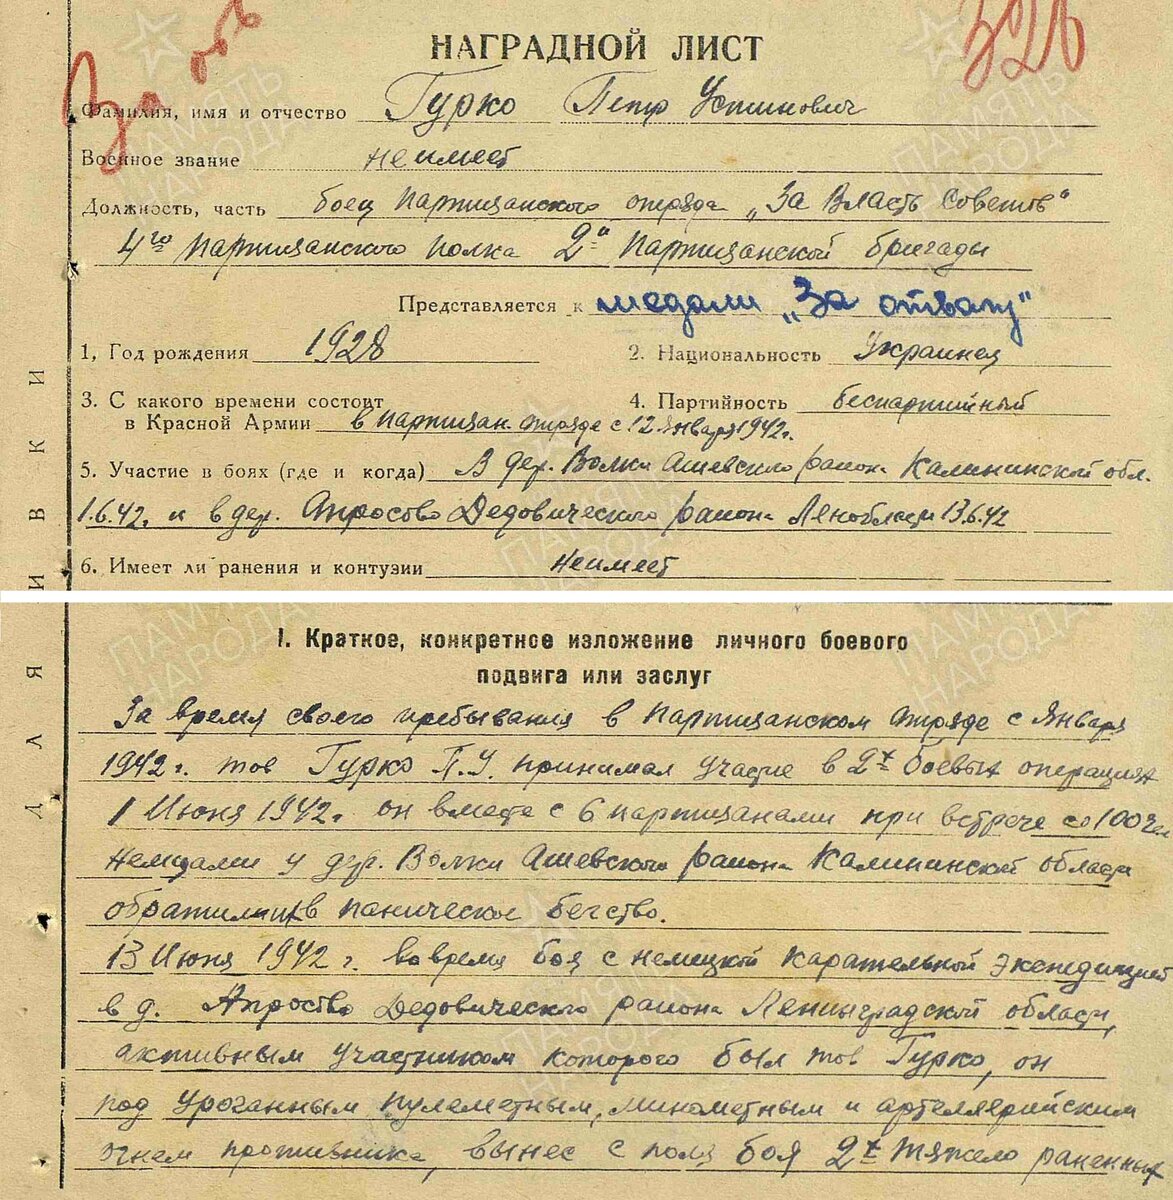 За отв
326
НАГРАДНОЙ ЛИСТ
Фамилия, имя и отчество Гурко Петр Устинович
Военное звание неимеет
Должность, часть боец партизанского отряда „За Власть Советов"
4го партизанского полка 2й Партизанской бригады
Представляется к медали „За отвагу"
1, Год рождения 1928 2. Национальность Украинец
3. С какого времени состоит 4. Партийность беспартийный
в Красной Армии в партизан. отряде с 12 января 1942г.
5. Участие в боях (где и когда) В дер. Волки Ашевского района Калининской обл.
1.6.42г. и в дер. Апросово Дедовического района Ленобласти 13.6.42
6. Имеет ли ранения и контузии Неимеет
ДЛЯ ИВКИ
I. Краткое, конкретное изложение личного боевого
подвига или заслуг
За время своего пребывания в партизанском отряде с Января
1942г. тов Гурко П.У. принимал участие в 2х боевых операциях
1 Июня 1942г. он вместе с 6 партизанами при встрече со 100 чел
Немцами у дер. Волки Ашевского района Калининской области
обратили их в паническое бегство.
13 Июня 1942 г. вовремя боя с немецкой карательной экспедицией
в д. Апросово Дедовического района Ленинградской области,
активным участником которого был тов Гурко, он
под ураганным пулеметным, минометным и артеллерийским
огнем противника, вынес с поля боя 2х тяжело раненных
ПАМЯТЬ НАРОДА